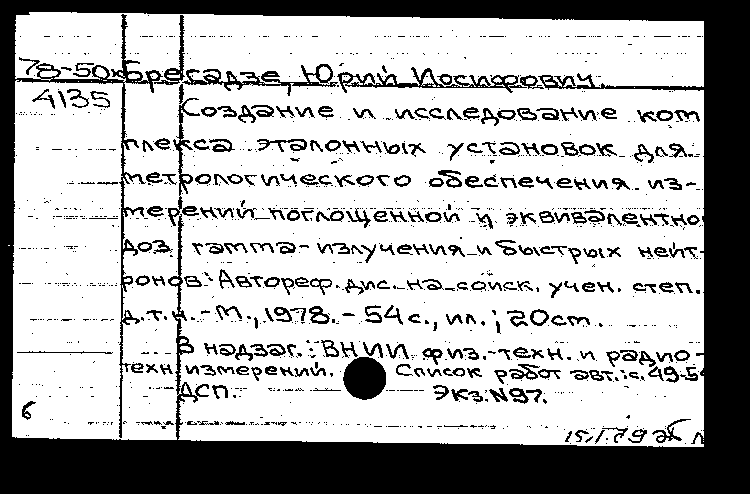 78-50к Брегадзе, Юрий Иосифович.
4135
Создание и исследование ком
плекса эталонных установок для
метрологического обеспечения из-
мерений поглощенной и эквивалентно
доз гамма-излучения и быстрых нейт-
ронов: Автореф. дис. на соиск. учен. степ.
д.т.н. - М., 1978. - 54 с., ил.; 20 см.
В надзаг.: ВНИИ физ.-техн. и радио-
техн. измерений. Список работ авт.: с. 49-54
ДСП. Экз. N97.
б
15.I.79